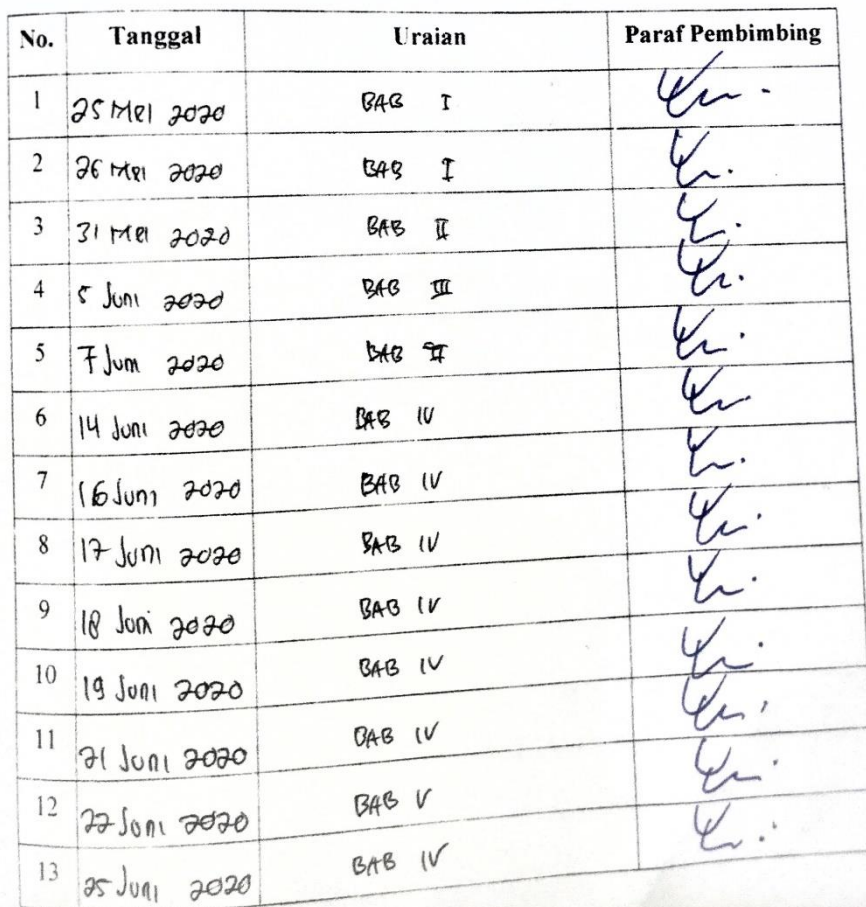 No. Tanggal Uraian Paraf Pembimbing
1 25 Mei 2020 BAB I
2 26 Mei 2020 BAB I
3 31 Mei 2020 BAB II
4 5 Juni 2020 BAB III
5 7 Juni 2020 BAB
6 14 Juni 2020 BAB IV
7 16 Juni 2020 BAB IV
8 17 Juni 2020 BAB IV
9 18 Juni 2020 BAB IV
10 19 Juni 2020 BAB IV
11 21 Juni 2020 BAB IV
12 22 Juni 2020 BAB V
13 25 Juni 2020 BAB IV